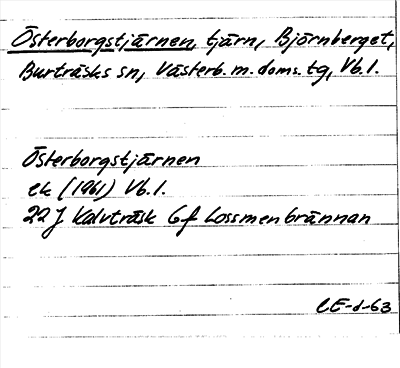 Österborgstjärnen, tjärn, Björnberget,
Burträsks sn, Västerb. m. doms. tg, Vb. l.
Österborgstjärnen
ek (1961) Vb. l.
22J Kalvträsk 6f Lossmenbrännan
CE-d-63